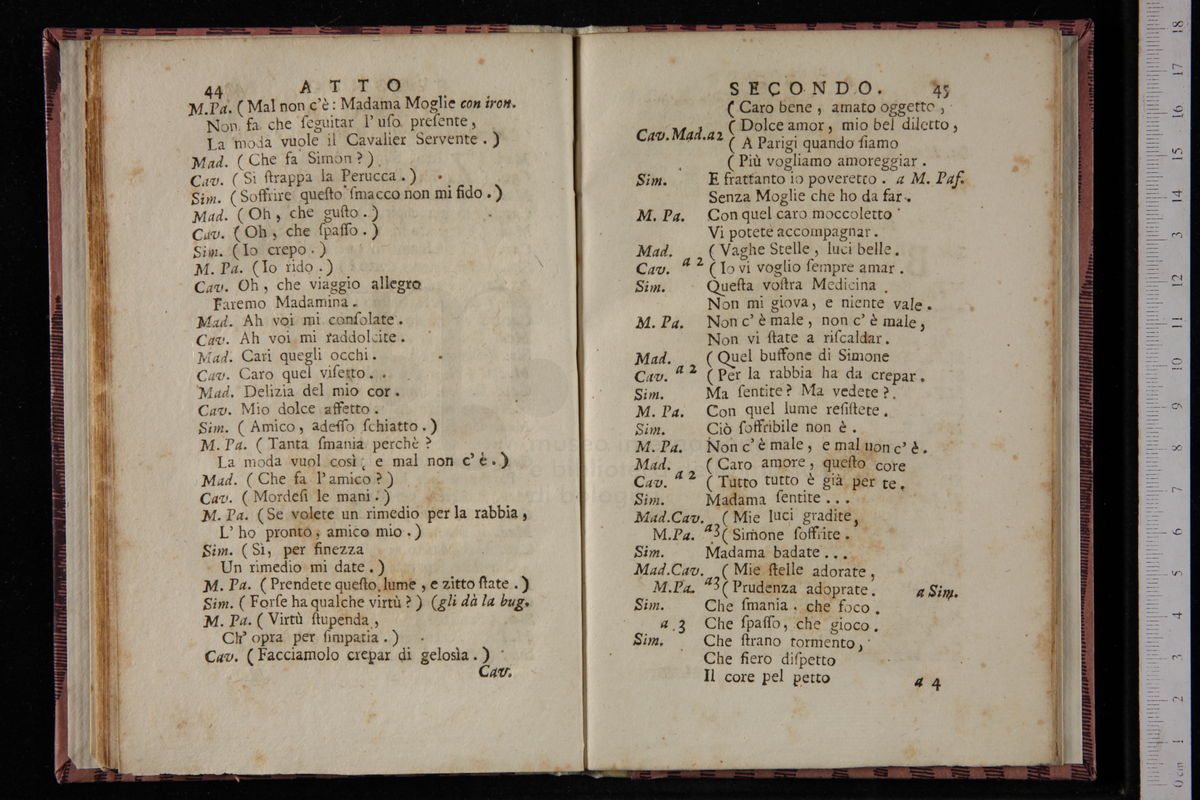 44 ATTO
M.Pa. ( Mal non c'è : Madama Moglie con iron.
Non fa che ſeguitar l' uſo preſente ,
La moda vuole il Cavalier Servente . )
Mad. ( Che fa Simon ? )
Cav. ( Si ſtrappa la Perucca . )
Sim. ( Soffrire queſto ſmacco non mi fido . )
Mad. ( Oh , che guſto . )
Cav. ( Oh , che ſpaſſo . )
Sim. ( Io crepo . )
M. Pa. ( Io rido . )
Cav. Oh , che viaggio allegro
Faremo Madamina .
Mad. Ah voi mi conſolate .
Cav. Ah voi mi raddolcite .
Mad. Cari quegli occhi .
Cav. Caro quel viſetto . .
Mad. Delizia del mio cor .
Cav. Mio dolce affetto .
Sim. ( Amico , adeſſo ſchiatto . )
M. Pa. ( Tanta ſmania perchè ?
La moda vuol così , e mal non c' è . )
Mad. ( Che fa l' amico ? )
Cav. ( Mordeſi le mani . )
M. Pa. ( Se volete un rimedio per la rabbia ,
L' ho pronto , amico mio . )
Sim. ( Sì , per finezza
Un rimedio mi date . )
M. Pa. ( Prendete queſto lume , e zitto ſtate . )
Sim. ( Forſe ha qualche virtù ? ) (gli dà la bug.
M. Pa. ( Virtù ſtupenda ,
Ch' opra per ſimpatia . )
Cav. ( Facciamolo crepar di gelosìa . )
Cav.
SECONDO. 45
( Caro bene , amato oggetto ,
Cav.Mad.a2 ( Dolce amor , mio bel diletto ,
( A Parigi quando ſiamo
( Più vogliamo amoreggiar .
Sim. E frattanto io poveretto . a M. Paſ.
Senza Moglie che ho da far .
M. Pa. Con quel caro moccoletto
Vi potete accompagnar .
Mad. ( Vaghe Stelle , luci belle .
Cav. a 2 ( Io vi voglio ſempre amar .
Sim. Queſta voſtra Medicina
Non mi giova , e niente vale .
M. Pa. Non c' è male , non c' è male ,
Non vi ſtate a riſcaldar .
Mad. ( Quel buffone di Simone
Cav. a 2 ( Per la rabbia ha da crepar .
Sim. Ma ſentite ? Ma vedete ? .
M. Pa. Con quel lume reſiſtete .
Sim. Ciò ſoffribile non è .
M. Pa. Non c' è male , e mal non c' è .
Mad. ( Caro amore , queſto core
Cav. a 2 ( Tutto tutto è già per te .
Sim. Madama ſentite . . .
Mad.Cav. ( Mie luci gradite ,
M.Pa. a3 ( Simone ſoffrite .
Sim. Madama badate . . .
Mad.Cav. ( Mie ſtelle adorate ,
M.Pa. a3 ( Prudenza adoprate . a Sim.
Sim. Che ſmania . che foco .
a 3 Che ſpaſſo , che gioco .
Sim. Che ſtrano tormento ,
Che fiero diſpetto
Il core pel petto
a 4